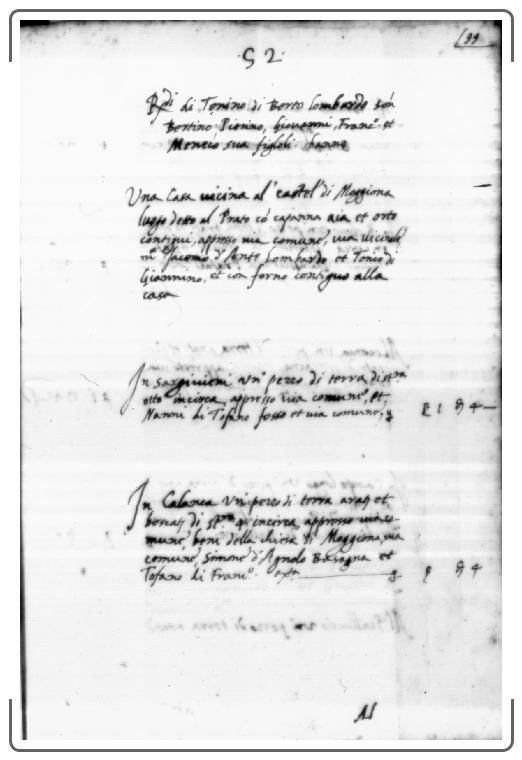 99
S 2
Rdi di Tonino di Berto lombardo con
Bertino Pierino, Giovanni, Franc.º et
Menco sua figloli hanno
Una Casa vicina al' castel' di Moggiona
luogo detto al Prato cō capanna aia et orto
contigui, appresso via comune, via vicinale
Jacomo d'Sante lombardo et Tonio di
Giovannino, et con forno contiguo alla
casa
In un' pezzo di terra di
otto incirca, appresso via comune, et
Nanni di Tofano fosso et via comune, 4
In Calanca un' pezzo di terra arat. et
boscat. di 4 incirca appresso via co
mune beni della chiesa di Moggiona, via
comune, Simone d'Agnolo et
Tofano di Franc.º
Al